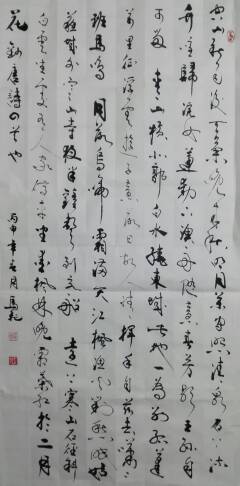 空山新雨後天氣晚來秋明月松間照清泉石上流
竹喧歸浣女蓮動下漁舟隨意春芳歇王孫自
可留 青山橫北郭白水繞東城此地一為別孤蓬
萬里征浮雲游子意落日故人情揮手自茲去蕭々
班馬鳴 月落烏啼霜滿天江楓漁火對愁眠姑
蘇城外寒山寺夜半鐘聲到客船 遠上寒山石徑斜
白雲生處有人家停車坐愛楓林晚霜葉紅於二月
花 錄唐詩四首也 丙申年 月馬